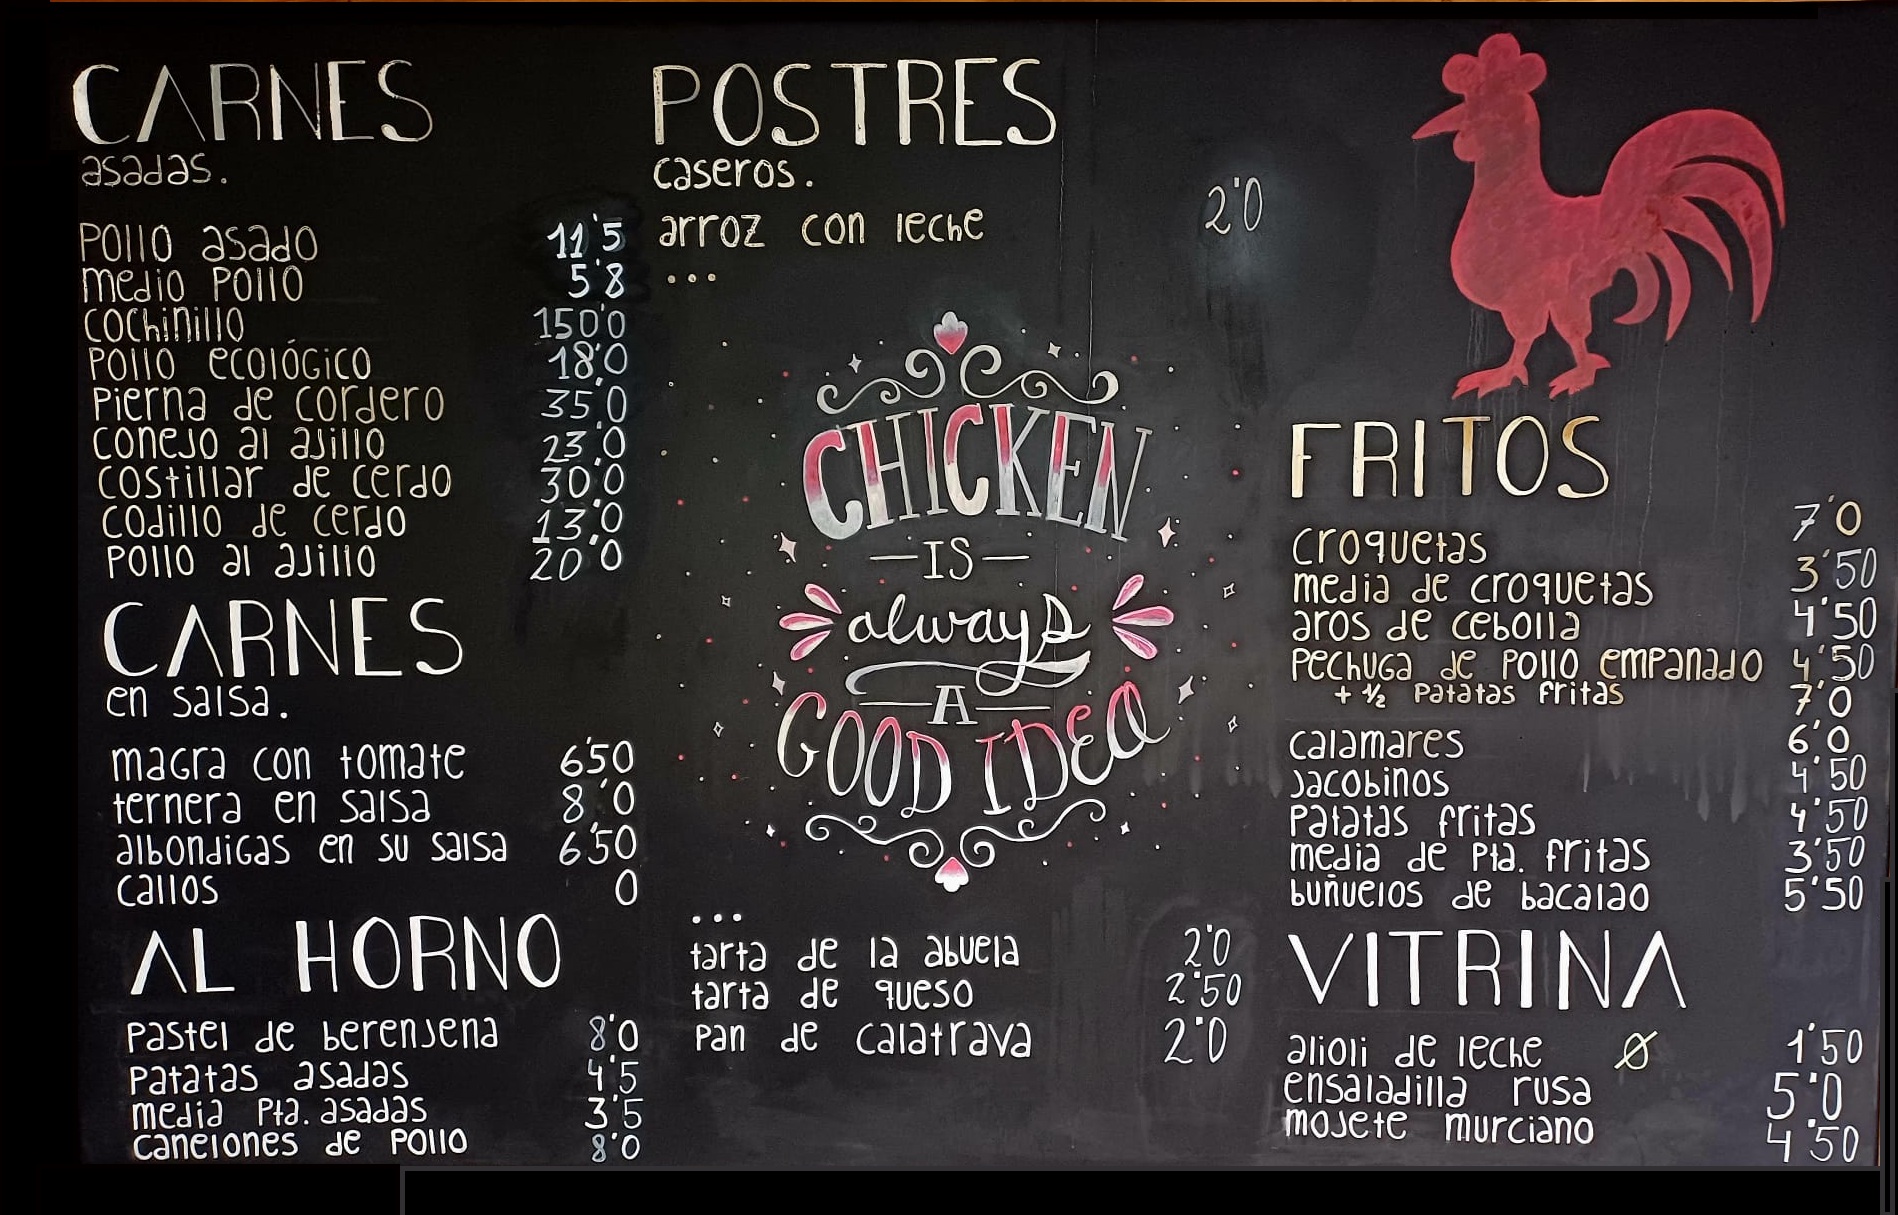 CARNES
asadas.
Pollo asado 11'5
medio pollo 5'8
cochinillo 150'0
pollo ecológico 18'0
pierna de cordero 35'0
conejo al ajillo 23'0
costillar de cerdo 30'0
codillo de cerdo 13'0
pollo al ajillo 20'0
CARNES
en salsa.
magra con tomate 6'50
ternera en salsa 8'0
albondigas en su salsa 6'50
callos 0
AL HORNO
pastel de berenjena 8'0
patatas asadas 4'5
media pta. asadas 3'5
canelones de pollo 8'0
POSTRES
caseros.
arroz con leche 2'0
...
CHICKEN
IS
always
A
GOOD IDEA
...
tarta de la abuela 2'0
tarta de queso 2'50
pan de calatrava 2'0
FRITOS
croquetas 7'0
media de croquetas 3'50
aros de cebolla 4'50
pechuga de pollo empanado 4'50
+ ½ patatas fritas 7'0
calamares 6'0
jacobinos 4'50
patatas fritas 4'50
media de pta. fritas 3'50
buñuelos de bacalao 5'50
VITRINA
alioli de leche Ø 1'50
ensaladilla rusa 5'0
mojete murciano 4'50